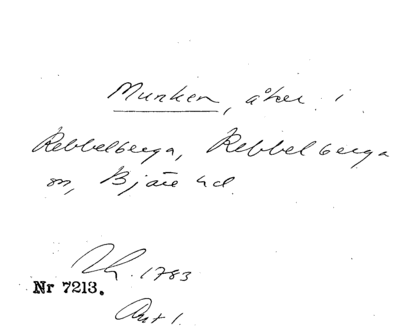 Munken, åker i
Rebbelberga, Rebbelberga
sn, Bjäre hd.
Lh. 1783
Nr 7213.
Akt 1.